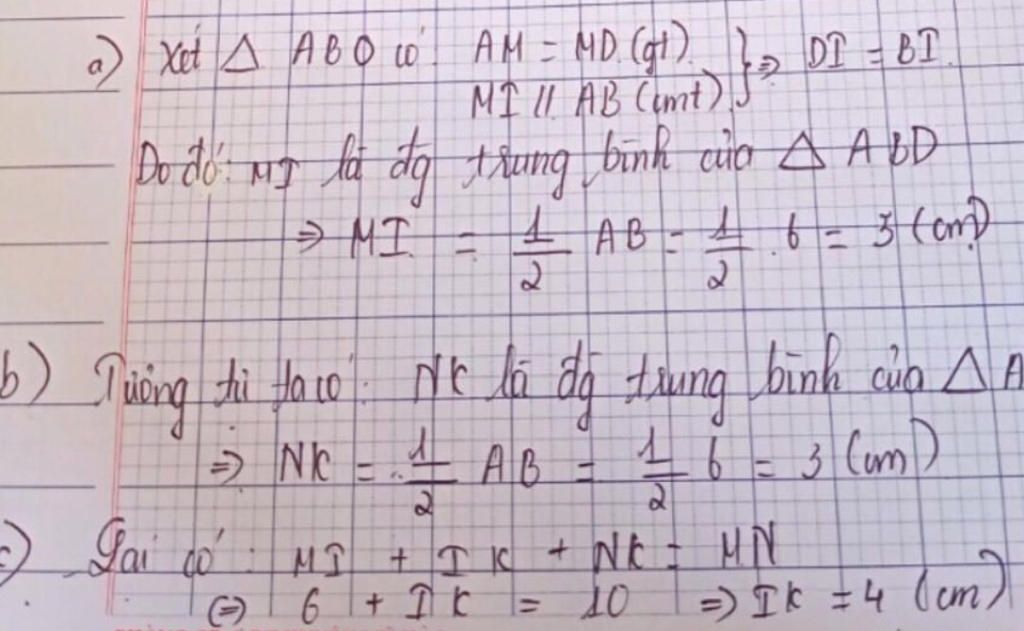 a) Xét △ ABD có AM = MD (gt) } ⇒ DI = BI.
MI // AB (cmt)
Do đó: MI là đg trung bình của △ ABD
⇒ MI = 1/2 AB = 1/2 . 6 = 3 (cm)
b) Tương tự ta có: NK là đg trung bình của △ A
⇒ NK = 1/2 AB = 1/2 6 = 3 (cm)
c) Lại có: MI + IK + NK = MN
⇔ 6 + IK = 10 ⇒ IK = 4 (cm)